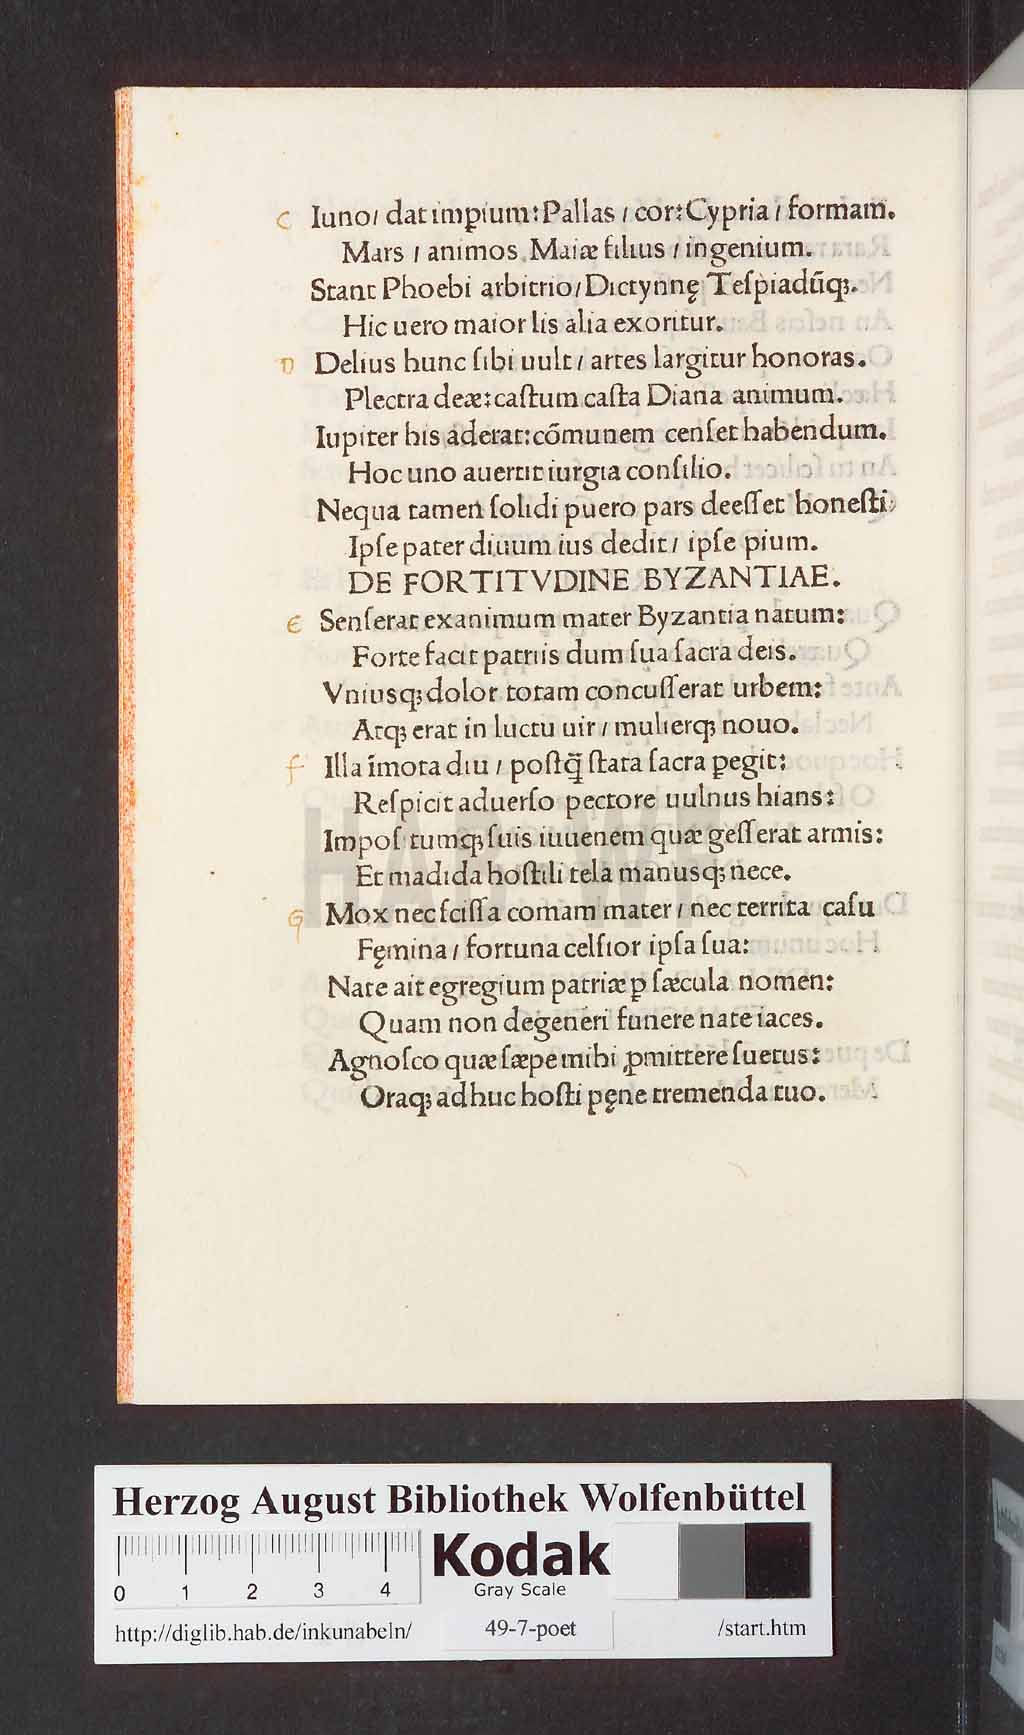 C Iuno/ dat impium: Pallas / cor: Cypria / formam.
Mars / animos. Maiæ filius / ingenium.
Stant Phoebi arbitrio/ Dictynnę Teſpiadūqꝫ.
Hic uero maior lis alia exoritur.
D Delius hunc ſibi uult / artes largitur honoras.
Plectra deæ: caſtum caſta Diana animum.
Iupiter his aderat: cōmunem cenſet habendum.
Hoc uno auertit iurgia conſilio.
Nequa tamen ſolidi puero pars deeſſet honeſti
Ipſe pater diuum ius dedit / ipſe pium.
DE FORTITVDINE BYZANTIAE.
E Senſerat exanimum mater Byzantia natum:
Forte facit patriis dum ſua ſacra deis.
Vniusqꝫ dolor totam concuſſerat urbem:
Atqꝫ erat in luctu uir / mulierqꝫ nouo.
f Illa īmota diu / poſtq̄ ſtata ſacra ꝑegit:
Reſpicit aduerſo pectore uulnus hians:
Impoſitumqꝫ ſuis iuuenem quæ geſſerat armis:
Et madida hoſtili tela manusqꝫ nece.
G Mox nec ſciſſa comam mater / nec territa caſu
Fęmina / fortuna celſior ipſa ſua:
Nate ait egregium patriæ ꝑ ſæcula nomen:
Quam non degeneri funere nate iaces.
Agnoſco quæ ſæpe mihi ꝓmittere ſuetus:
Oraqꝫ adhuc hoſti pęne tremenda tuo.
HAB WF
Herzog August Bibliothek Wolfenbüttel
0 1 2 3 4
Kodak
Gray Scale
http://diglib.hab.de/inkunabeln/ 49-7-poet /start.htm